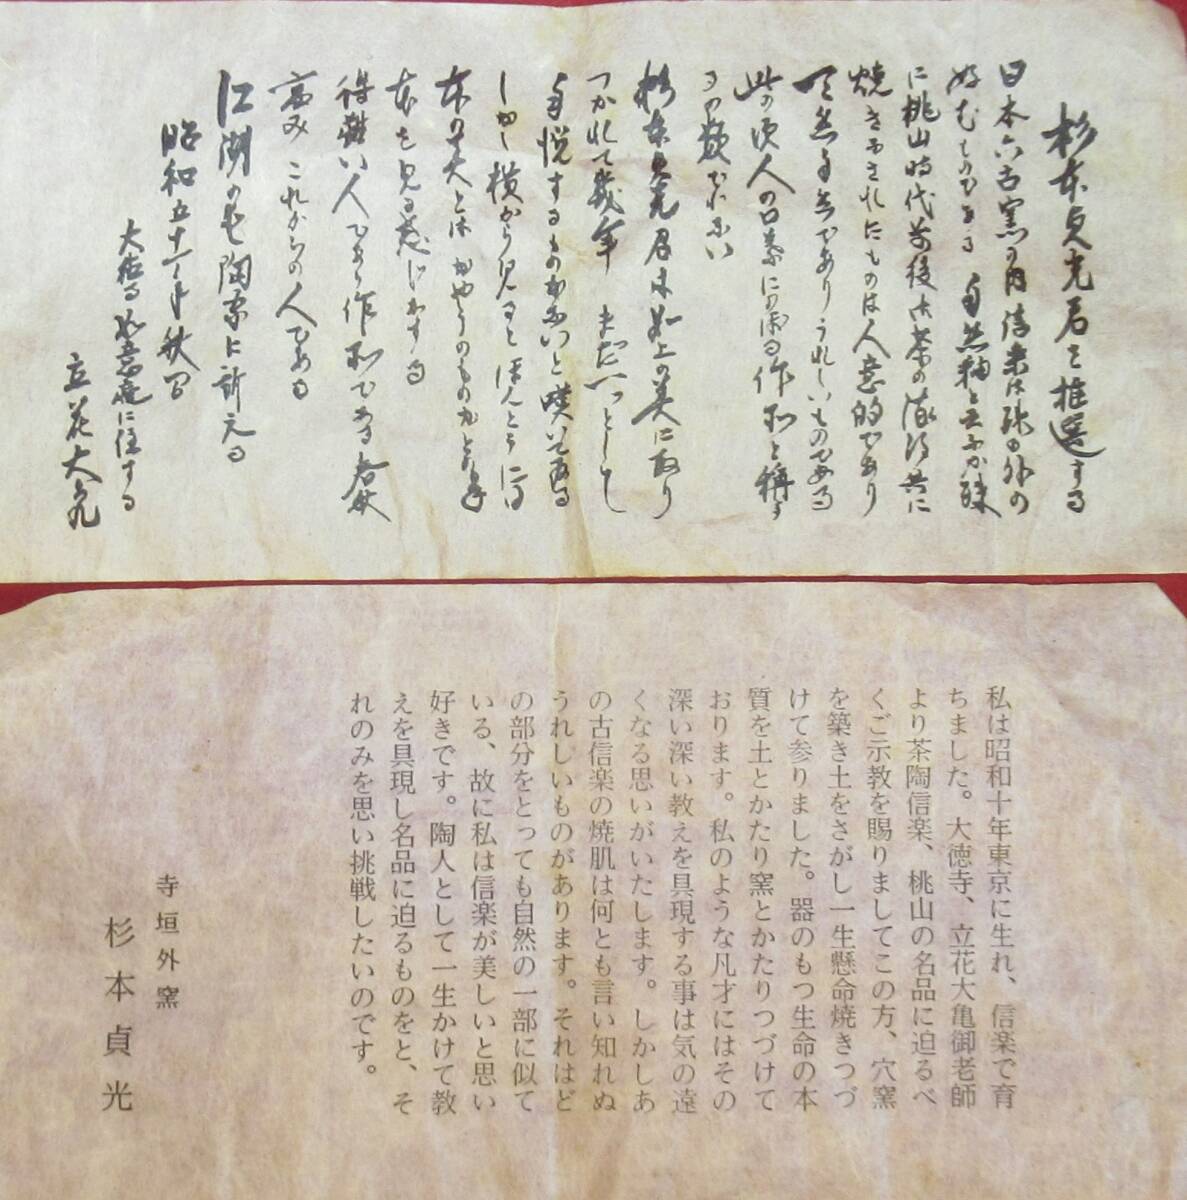 杉本貞光君を推選する
日本六古窯の内信楽は殊の外の
自然釉と云ふか殊
に桃山時代前後は茶の流行共に
焼きなされたものは人意的であり
天然自然でありうれしいものである
此の頃人の口葉にのぼる作和と称す
るの数すくない
杉本貞光君は如上の美に取り
つかれて幾年 まだ一つとして
自悦するものがないと嘆いて居る
しかし横から見るとほんとうに日
本の美とはかやうのものかと日
本を見る感じがする
得難い人である 作和である 春秋
富み これからの人である
江湖の愛陶家に訴へる
昭和五十一年秋日
大徳寺如意庵に住する
立花大亀
私は昭和十年東京に生れ、信楽で育
ちました。大徳寺、立花大亀御老師
より茶陶信楽、桃山の名品に迫るべ
くご示教を賜りましてこの方、穴窯
を築き土をさがし一生懸命焼きつづ
けて参りました。器のもつ生命の本
質を土とかたり窯とかたりつづけて
おります。私のような凡才にはその
深い深い教えを具現する事は気の遠
くなる思いがいたします。しかしあ
の古信楽の焼肌は何とも言い知れぬ
うれしいものがあります。それはど
の部分をとっても自然の一部に似て
いる、故に私は信楽が美しいと思い
好きです。陶人として一生かけて教
えを具現し名品に迫るものをと、そ
れのみを思い挑戦したいのです。
寺垣外窯
杉本貞光